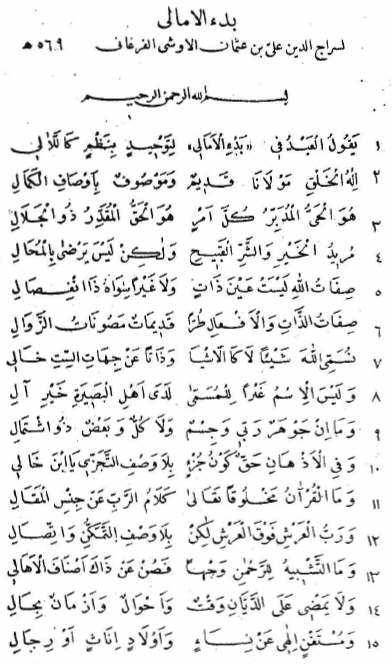 بدء الامالى
لسراج الدين علىّ بن عثمان الاوشى الفرغانى ٥٦٩ هـ
بسم الله الرحمن الرحيم
١ يَقُولُ الْعَبْدُ فِى «بَدْءِ الْاَمَالِى» لِتَوْحِيدٍ بِنَظْمٍ كَاللَّآلِى
٢ اِلٰهُ الْخَلْقِ مَوْلَانَا قَدِيمٌ وَمَوْصُوفٌ بِاَوْصَافِ الْكَمَالِ
٣ هُوَ الْحَىُّ الْمُدَبِّرُ كُلَّ اَمْرٍ هُوَ الْحَقُّ الْمُقَدِّرُ ذُو الْجَلَالِ
٤ مُرِيدُ الْخَيْرِ وَالشَّرِّ الْقَبِيحِ وَلٰكِنْ لَيْسَ يَرْضٰى بِالْمُحَالِ
٥ صِفَاتُ اللّٰهِ لَيْسَتْ عَيْنَ ذَاتٍ وَلَا غَيْرًا سِوَاهُ ذَا انْفِصَالِ
٦ صِفَاتُ الذَّاتِ وَالْاَفْعَالِ طُرًّا قَدِيمَاتٌ مَصُونَاتُ الزَّوَالِ
٧ نُسَمِّى اللّٰهَ شَيْئًا لَا كَالْاَشْيَا وَذَاتًا عَنْ جِهَاتِ السِّتِّ خَالِى
٨ وَلَيْسَ الْاِسْمُ غَيْرًا لِلْمُسَمّٰى لَدٰى اَهْلِ الْبَصِيرَةِ خَيْرِ آلِ
٩ وَمَا اِنْ جَوْهَرٌ رَبِّى وَجِسْمٌ وَلَا كُلٌّ وَبَعْضٌ ذُو اشْتِمَالِ
١٠ وَفِى الْاَذْهَانِ حَقٌّ كَوْنُ جُزْءٍ بِلَا وَصْفِ التَّجَزِّى يَا ابْنَ خَالِى
١١ وَمَا الْقُرْاٰنُ مَخْلُوقًا تَعَالٰى كَلَامُ الرَّبِّ عَنْ جِنْسِ الْمَقَالِ
١٢ وَرَبُّ الْعَرْشِ فَوْقَ الْعَرْشِ لٰكِنْ بِلَا وَصْفِ التَّمَكُّنِ وَاتِّصَالِ
١٣ وَمَا التَّشْبِيهُ لِلرَّحْمٰنِ وَجْهًا فَصُنْ عَنْ ذَاكَ اَصْنَافَ الْاَهَالِى
١٤ وَلَا يَمْضِى عَلَى الدَّيَّانِ وَقْتٌ وَاَحْوَالٌ وَاَزْمَانٌ بِحَالِ
١٥ وَمُسْتَغْنٍ اِلٰهِى عَنْ نِسَاءٍ وَاَوْلَادٍ اِنَاثٍ اَوْ رِجَالِ